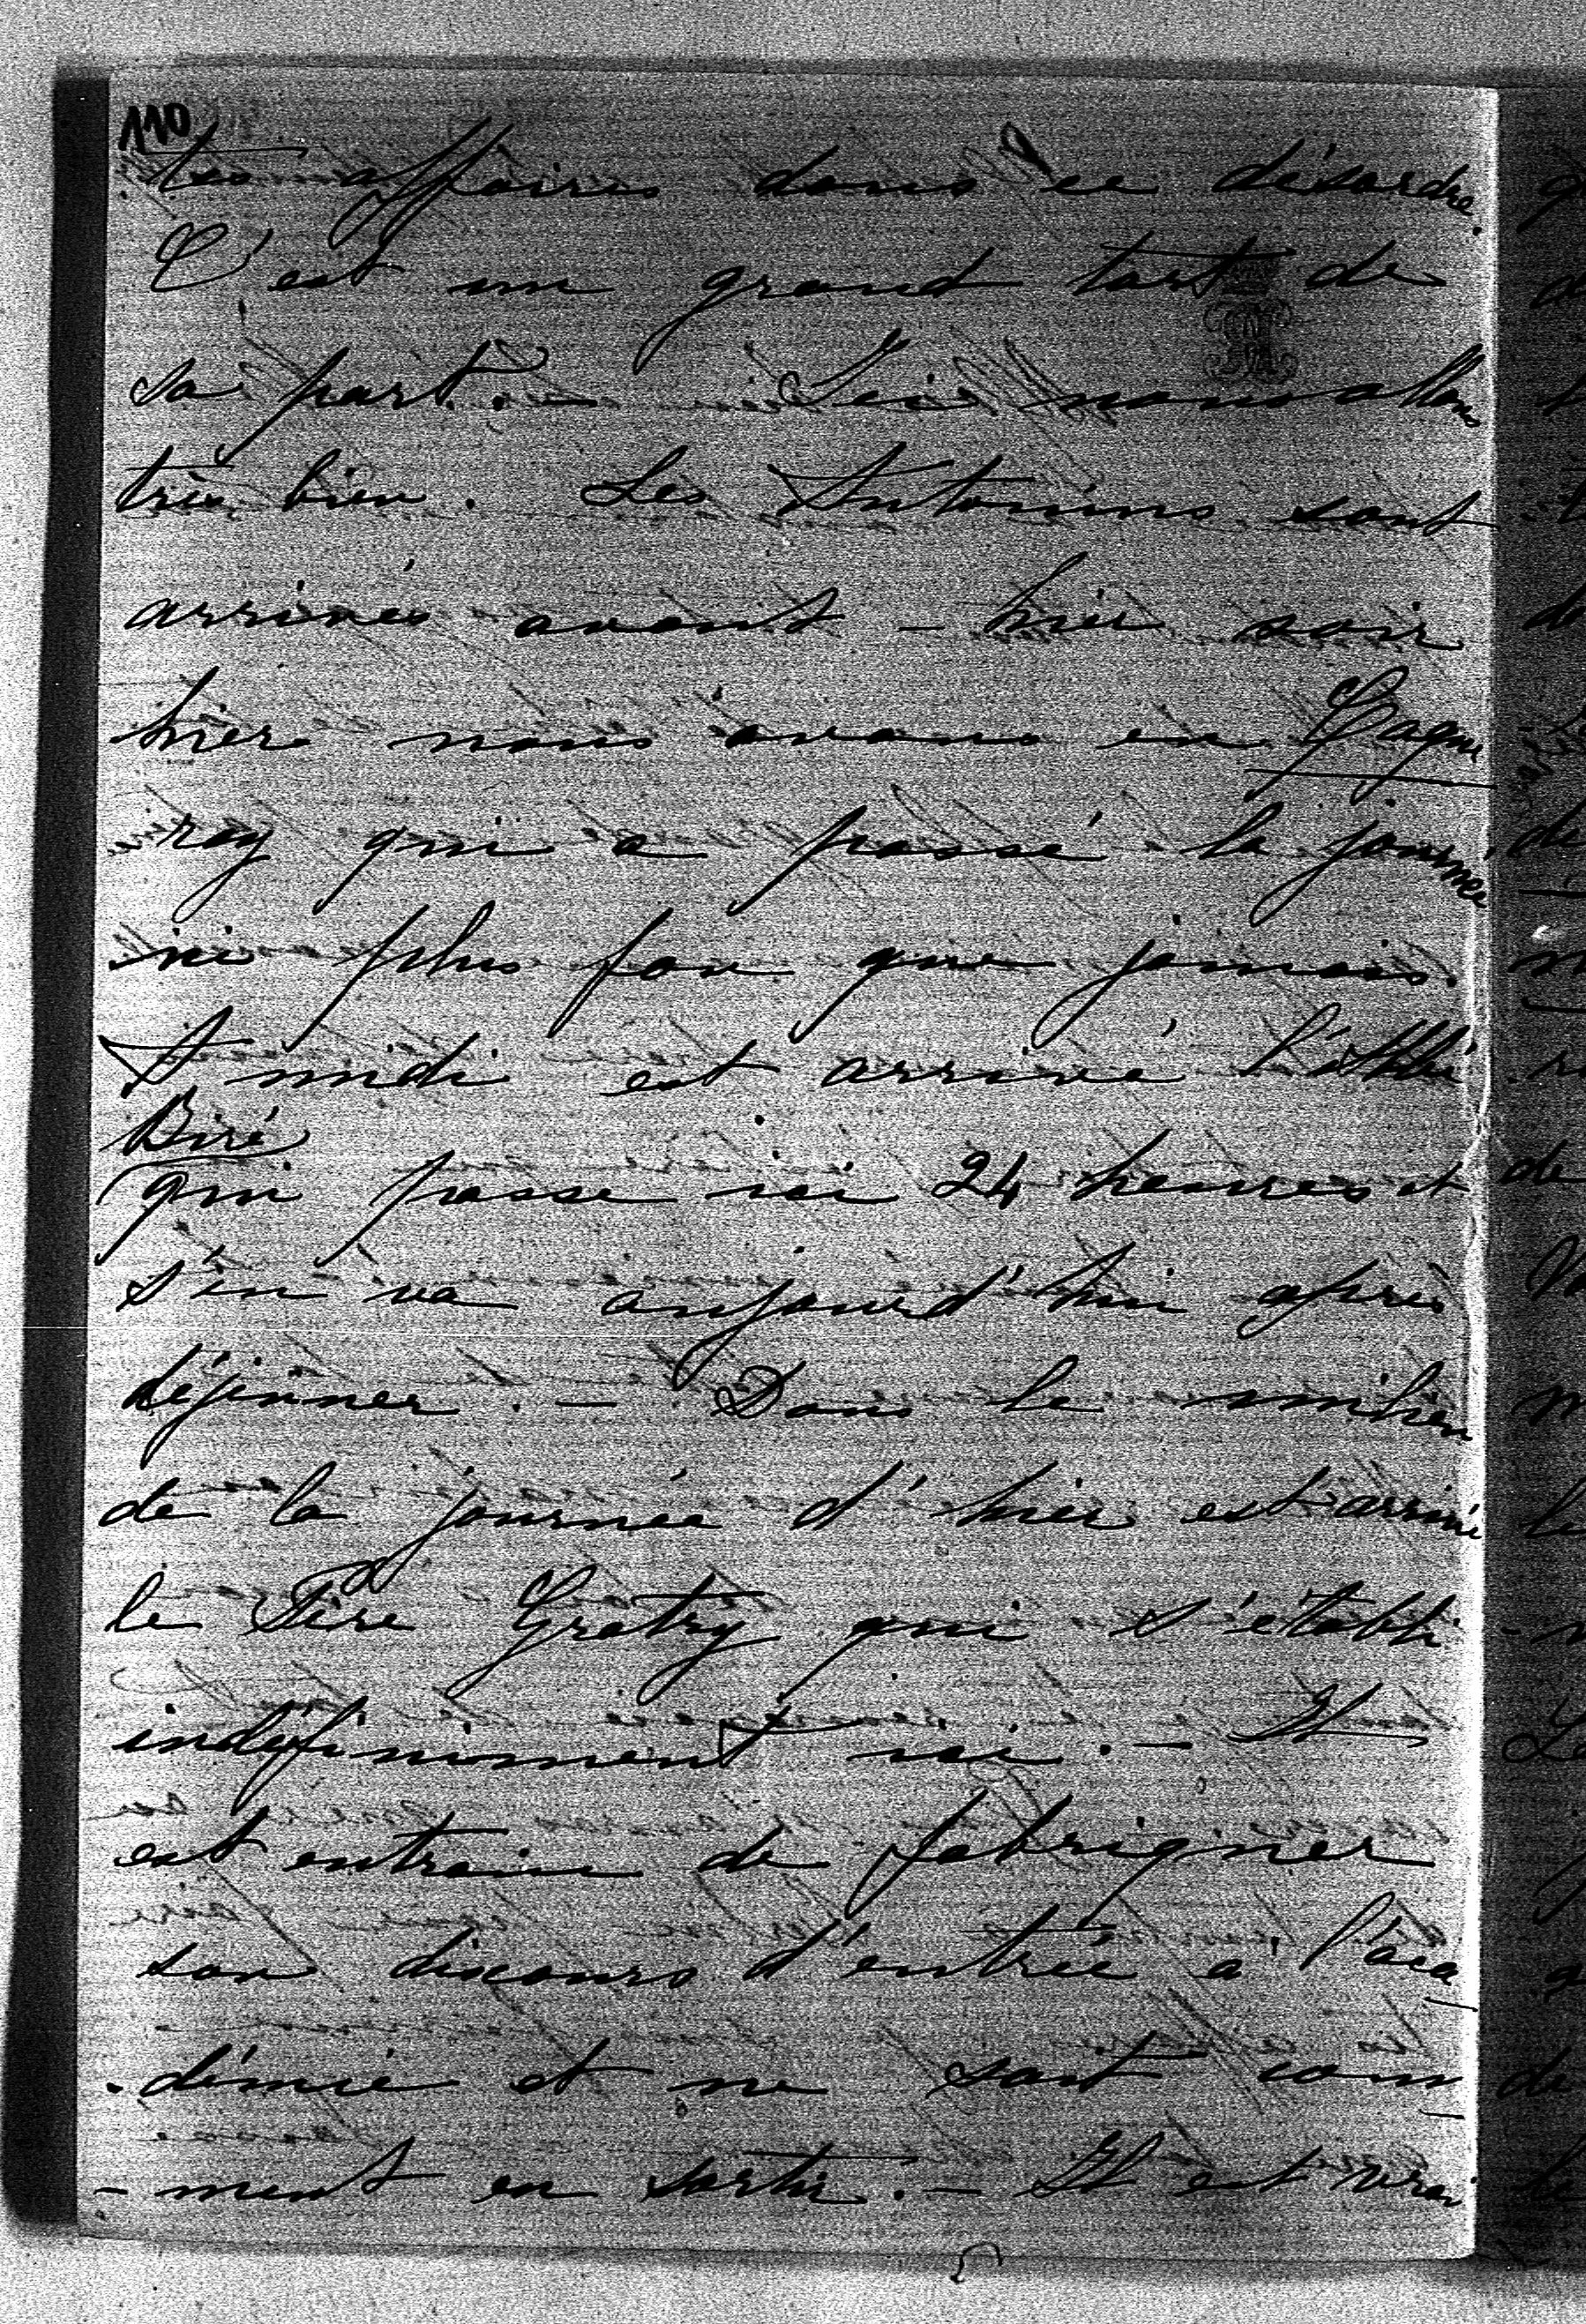 110
tes affaires dans ce désordre.
C'est un grand tort de
sa part. – Ici nous allons
très bien. Les Antonins sont
arrivés avant-hier soir
hier nous avons eu Gagne
ray qui a passé la journée
ici plus fou que jamais.
A midi est arrivé l'abbé
Biré
qui passe ici 24 heures et
s'en va aujourd'hui après
déjeuner. – Dans le milieu
de la journée d'hier est arrivé
le Père Gratry qui s'établi
indéfiniment ici. – Il
est entrain de fabriquer
son discours d'entrée a l'aca
démie et ne sait com
- ment en sortir. – Il est vrai